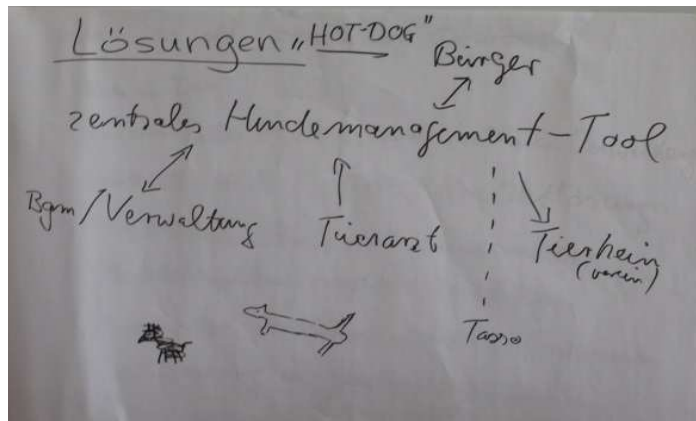 Lösungen „HOT-DOG"
Bürger
zentrales Hundemanagement-Tool
Bgm/Verwaltung
Tierarzt
Tierheim
(verein)
Tasso